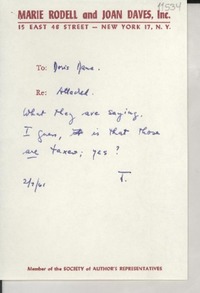 11534
MARIE RODELL and JOAN DAVES, Inc.
15 EAST 48 STREET – NEW YORK 17, N.Y.
To: Doris Dana.
Re: Attached.
What they are saying,
I guess, is that those
are taxes; yes?
T.
Member of the SOCIETY of AUTHOR'S REPRESENTATIVES